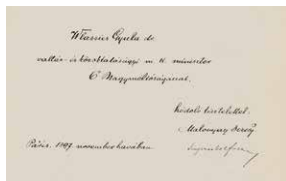 Wlassics Gyula dr.
vallás- és közoktatásügyi m. k. miniszter
Ő Nagyméltóságának.
hódoló tisztelettel
Malonyay Dezső
Páris, 1897. november havában.